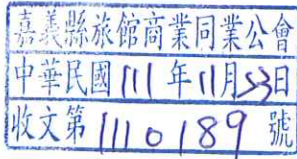 嘉義縣旅館商業同業公會
中華民國111年11月23日
收文第1110189號